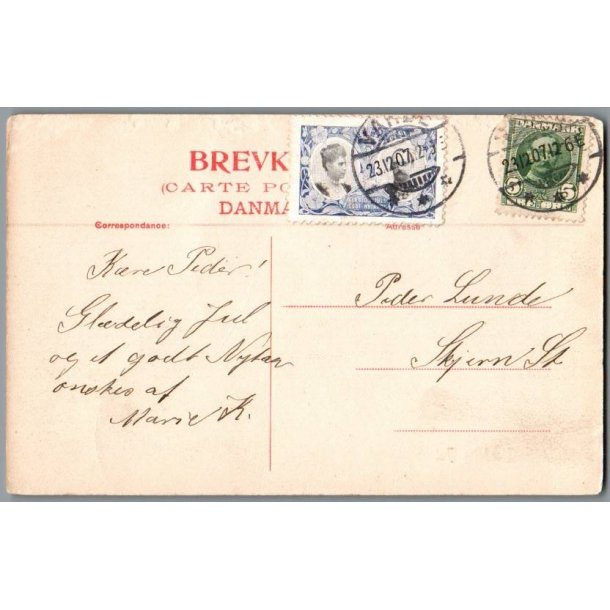 BREVK
(CARTE PO
DANMA
VARDE
23.12.07. 2-3
DANMARK
23.12.07. 12-6E
5 5
Correspondance:
Adresse
Kære Peder!
Glædelig Jul
og et godt Nytaar
ønskes af
Marie K.
Peder Lunde
Skjern St